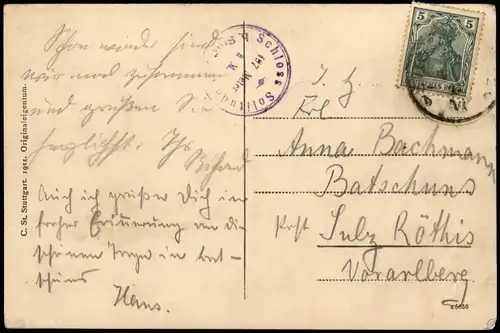 Schon wieder sind
wir mal zusammen
und grüßen Sie
herzlichst. Ihr
Auch ich grüße Dich in
froher Erinnerung an die
schönen Tage in Bat-
schuns
Hans.
C. St. Stuttgart. 1911. Originaleigentum.
Schloss Solitude
5
DEUTSCHES REICH
Frl
Anna Bachmann
Batschuns
Post Sulz Röthis
Vorarlberg